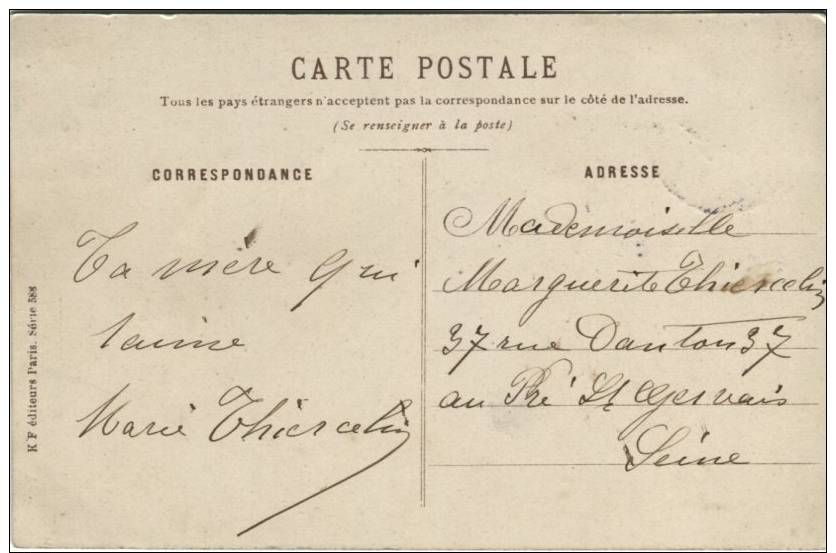 CARTE POSTALE
Tous les pays étrangers n'acceptent pas la correspondance sur le côté de l'adresse.
(Se renseigner à la poste)
CORRESPONDANCE
Ta mére qui
taime
Marie Thiercelin
ADRESSE
Mademoiselle
Marguerite Thiercelin
37 rue Danton 37
au Pré St Gervais
Seine
K F éditeurs Paris. Série 588